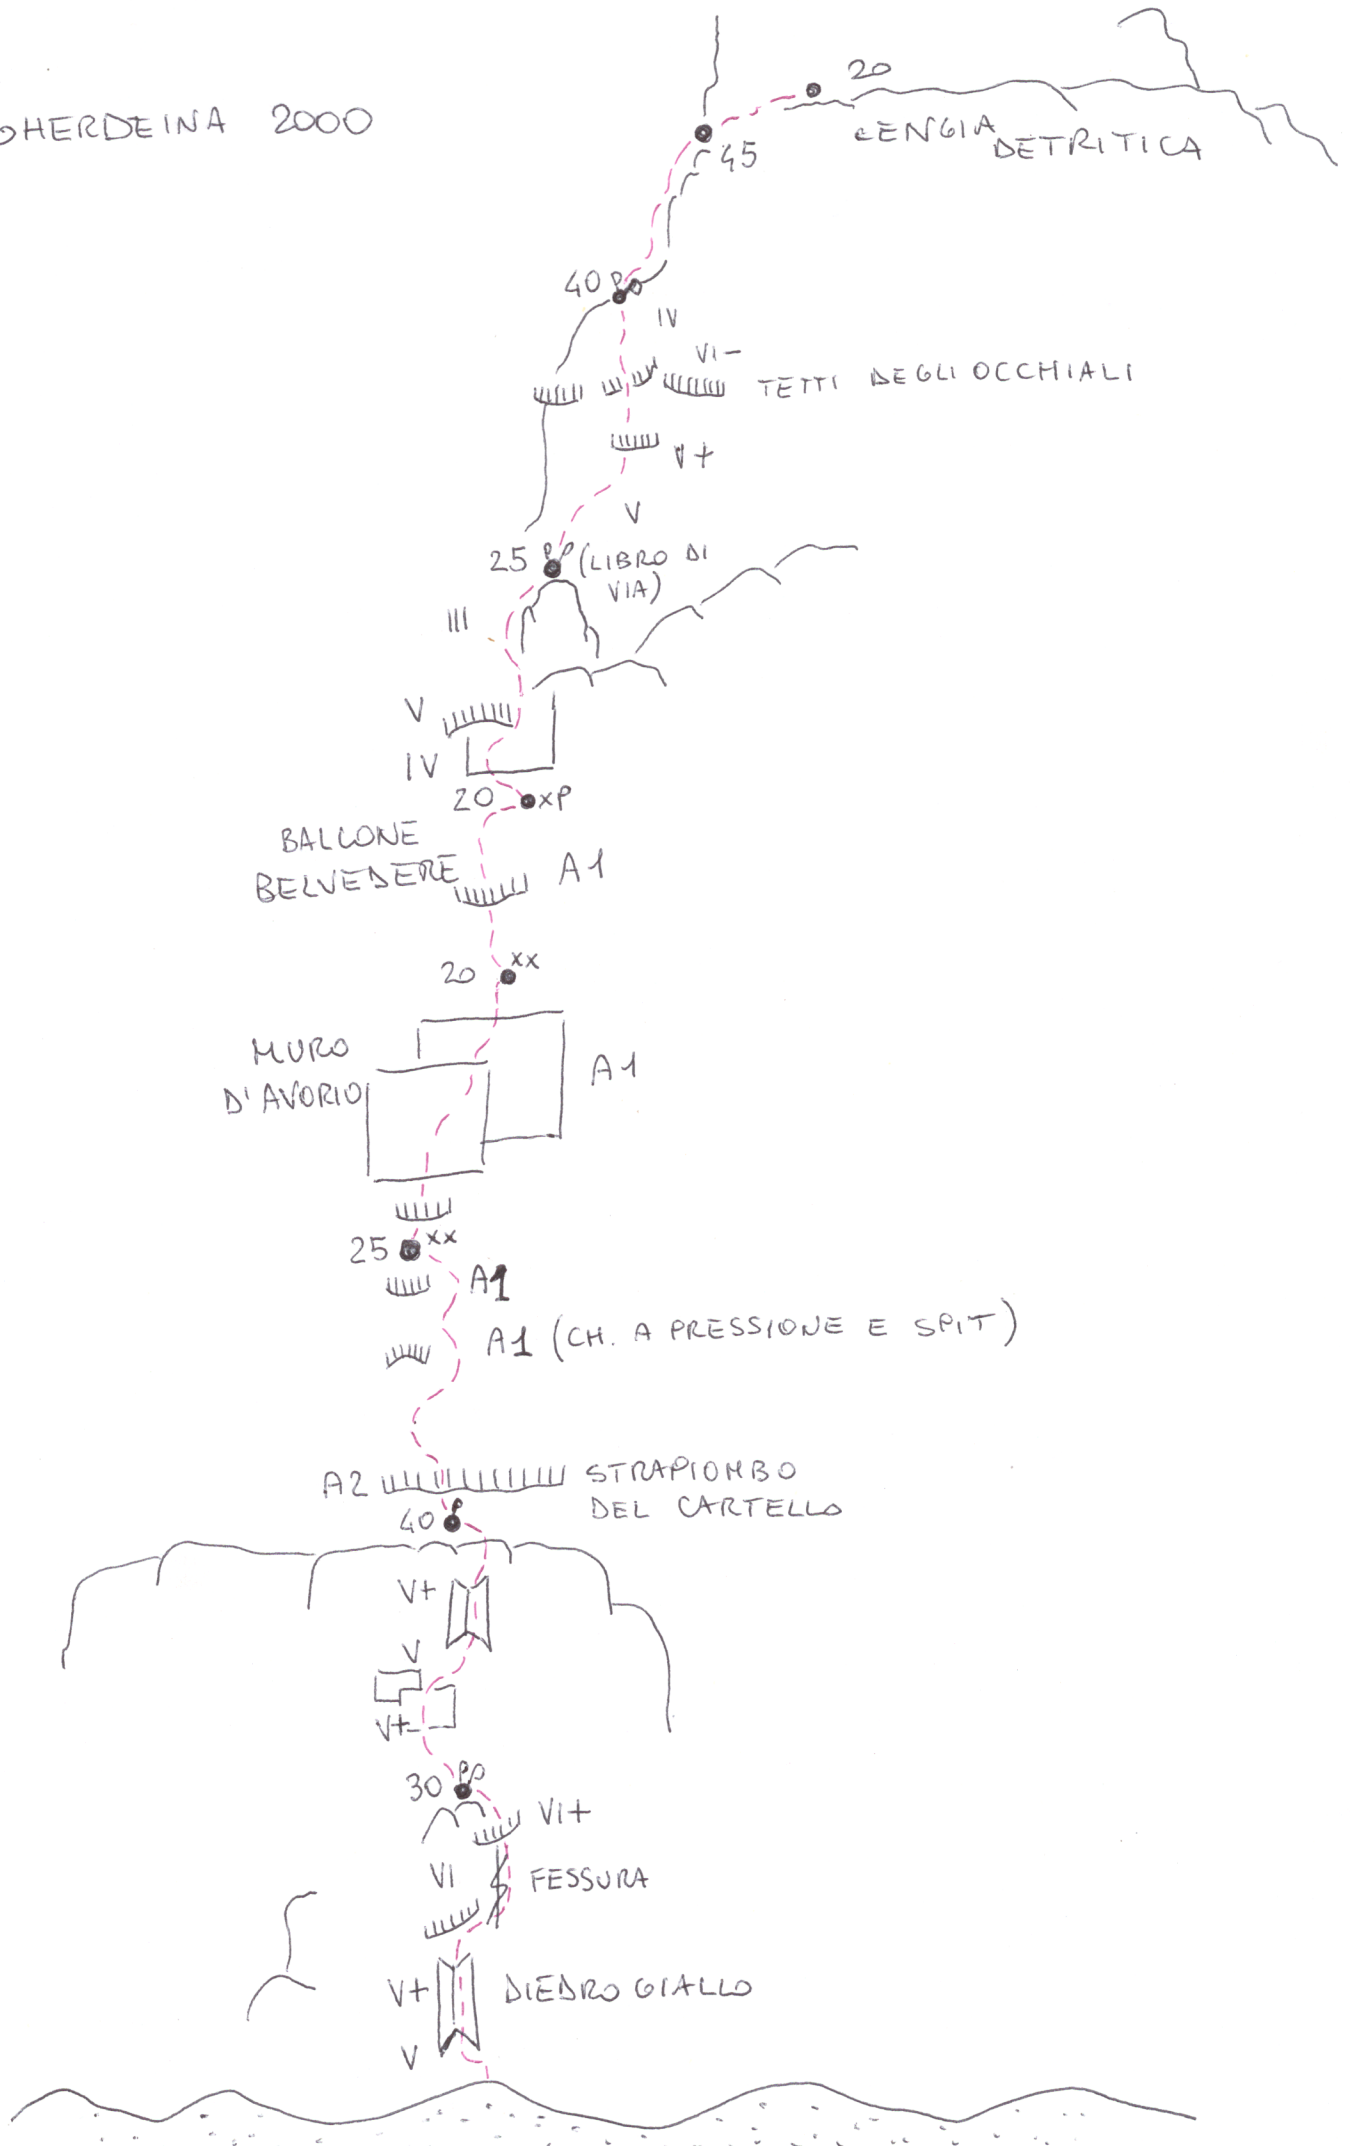 GHERDEINA 2000
20
CENGIA
DETRITICA
45
40
IV
VI-
TETTI DEGLI OCCHIALI
V+
V
25 (LIBRO DI
VIA)
III
V
IV
20 xP
BALCONE
BELVEDERE A1
20 xx
MURO
D'AVORIO
A1
25 xx
A1
A1 (CH. A PRESSIONE E SPIT)
A2 STRAPIOMBO
DEL CARTELLO
40
V+
V
V+
30
VI+
VI FESSURA
V+ DIEDRO GIALLO
V